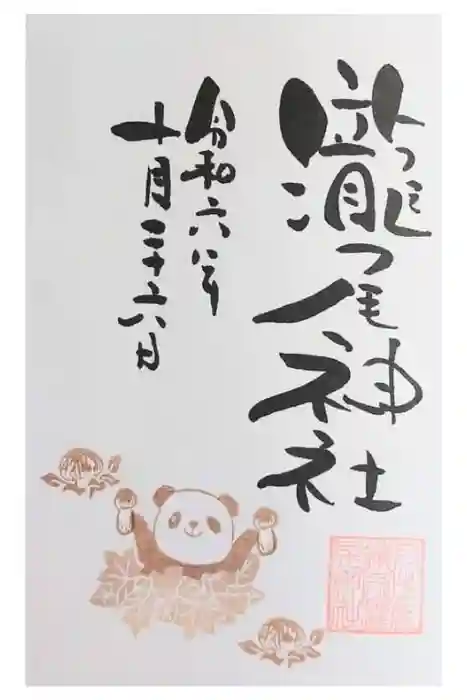 瀧尾神社
令和六年
十月二十六日